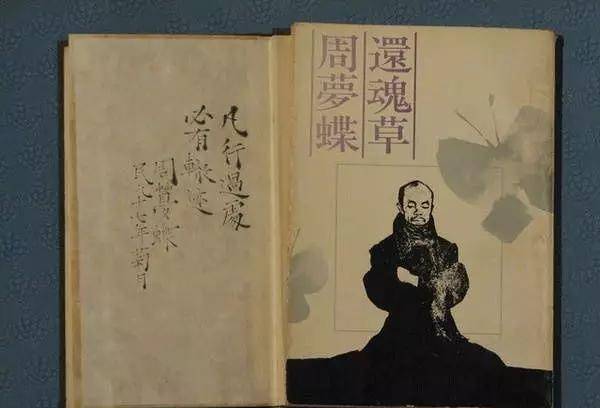 還魂草
周夢蝶
凡行過處
必有轍迹
周夢蝶
民六十七年